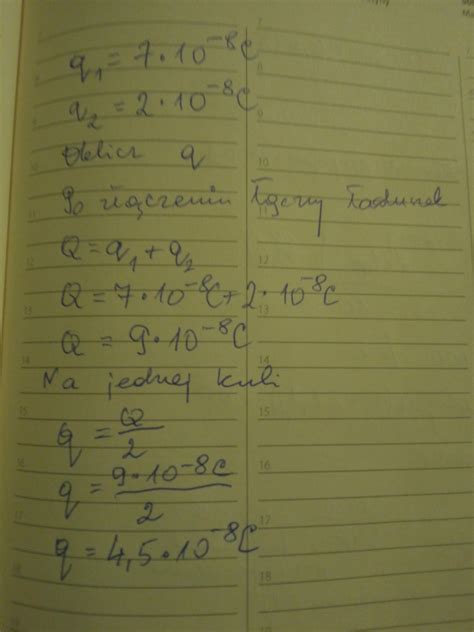 q₁ = 7·10⁻⁸C
q₂ = 2·10⁻⁸C
Oblicz q
Po złączeniu łączny ładunek
Q = q₁ + q₂
Q = 7·10⁻⁸C + 2·10⁻⁸C
Q = 9·10⁻⁸C
Na jednej kuli
q = Q/2
q = 9·10⁻⁸C/2
q = 4,5·10⁻⁸C